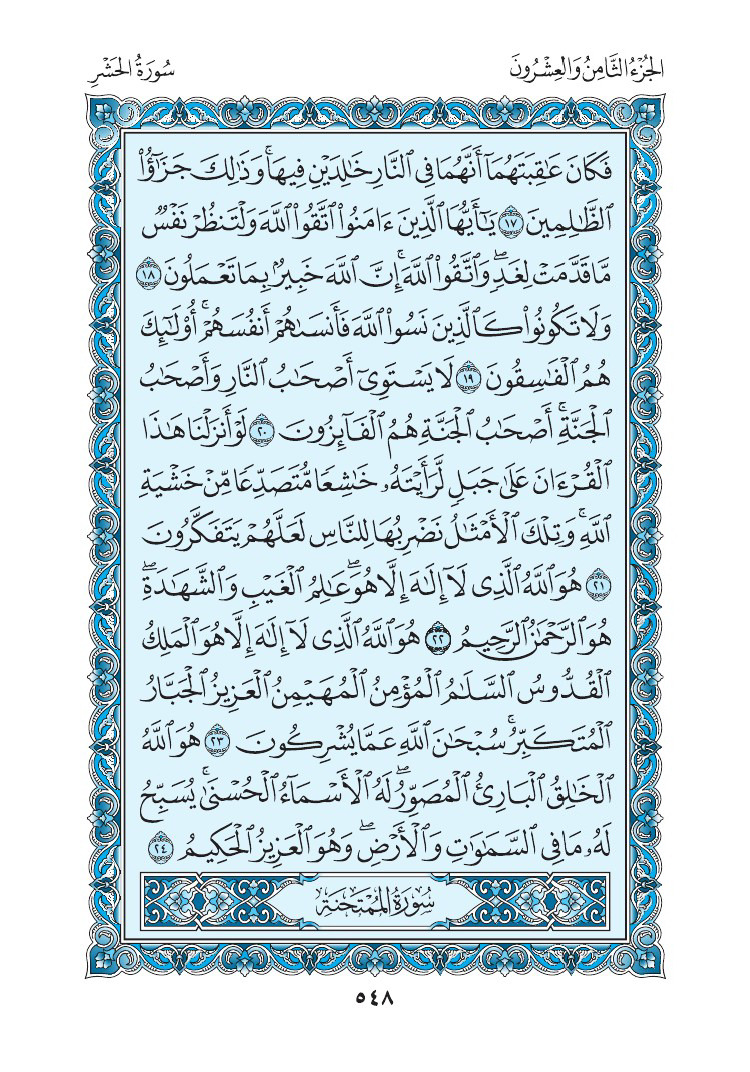 الجُزْءُ الثَّامِنُ وَالعِشْرُونَ
سُورَةُ الحَشْرِ
فَكَانَ عَٰقِبَتَهُمَآ أَنَّهُمَا فِي ٱلنَّارِ خَٰلِدَيْنِ فِيهَاۚ وَذَٰلِكَ جَزَٰٓؤُاْ
ٱلظَّٰلِمِينَ ١٧ يَٰٓأَيُّهَا ٱلَّذِينَ ءَامَنُواْ ٱتَّقُواْ ٱللَّهَ وَلۡتَنظُرۡ نَفۡسٞ
مَّا قَدَّمَتۡ لِغَدٖۖ وَٱتَّقُواْ ٱللَّهَۚ إِنَّ ٱللَّهَ خَبِيرُۢ بِمَا تَعۡمَلُونَ ١٨
وَلَا تَكُونُواْ كَٱلَّذِينَ نَسُواْ ٱللَّهَ فَأَنسَىٰهُمۡ أَنفُسَهُمۡۚ أُوْلَٰٓئِكَ
هُمُ ٱلۡفَٰسِقُونَ ١٩ لَا يَسۡتَوِيٓ أَصۡحَٰبُ ٱلنَّارِ وَأَصۡحَٰبُ
ٱلۡجَنَّةِۚ أَصۡحَٰبُ ٱلۡجَنَّةِ هُمُ ٱلۡفَآئِزُونَ ٢٠ لَوۡ أَنزَلۡنَا هَٰذَا
ٱلۡقُرۡءَانَ عَلَىٰ جَبَلٖ لَّرَأَيۡتَهُۥ خَٰشِعٗا مُّتَصَدِّعٗا مِّنۡ خَشۡيَةِ
ٱللَّهِۚ وَتِلۡكَ ٱلۡأَمۡثَٰلُ نَضۡرِبُهَا لِلنَّاسِ لَعَلَّهُمۡ يَتَفَكَّرُونَ
٢١ هُوَ ٱللَّهُ ٱلَّذِي لَآ إِلَٰهَ إِلَّا هُوَۖ عَٰلِمُ ٱلۡغَيۡبِ وَٱلشَّهَٰدَةِۖ
هُوَ ٱلرَّحۡمَٰنُ ٱلرَّحِيمُ ٢٢ هُوَ ٱللَّهُ ٱلَّذِي لَآ إِلَٰهَ إِلَّا هُوَ ٱلۡمَلِكُ
ٱلۡقُدُّوسُ ٱلسَّلَٰمُ ٱلۡمُؤۡمِنُ ٱلۡمُهَيۡمِنُ ٱلۡعَزِيزُ ٱلۡجَبَّارُ
ٱلۡمُتَكَبِّرُۚ سُبۡحَٰنَ ٱللَّهِ عَمَّا يُشۡرِكُونَ ٢٣ هُوَ ٱللَّهُ
ٱلۡخَٰلِقُ ٱلۡبَارِئُ ٱلۡمُصَوِّرُۖ لَهُ ٱلۡأَسۡمَآءُ ٱلۡحُسۡنَىٰۚ يُسَبِّحُ
لَهُۥ مَا فِي ٱلسَّمَٰوَٰتِ وَٱلۡأَرۡضِۖ وَهُوَ ٱلۡعَزِيزُ ٱلۡحَكِيمُ ٢٤
سُورَةُ المُمْتَحنَةِ
٥٤٨